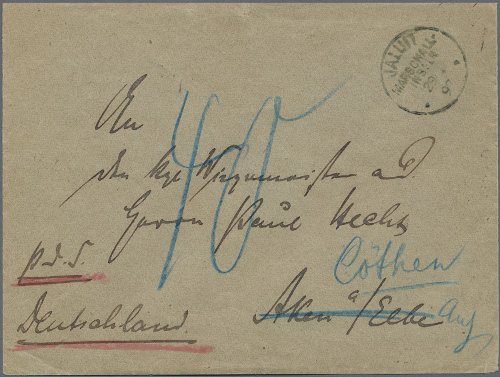 JALUIT
MARSCHALL-
INSELN
29
9
An
den Kgl. Bürgermeister a D
Herrn Paul Hecht
40
p. d. S.
Cöthen
Aken a/Elbe
Anh
Deutschland.